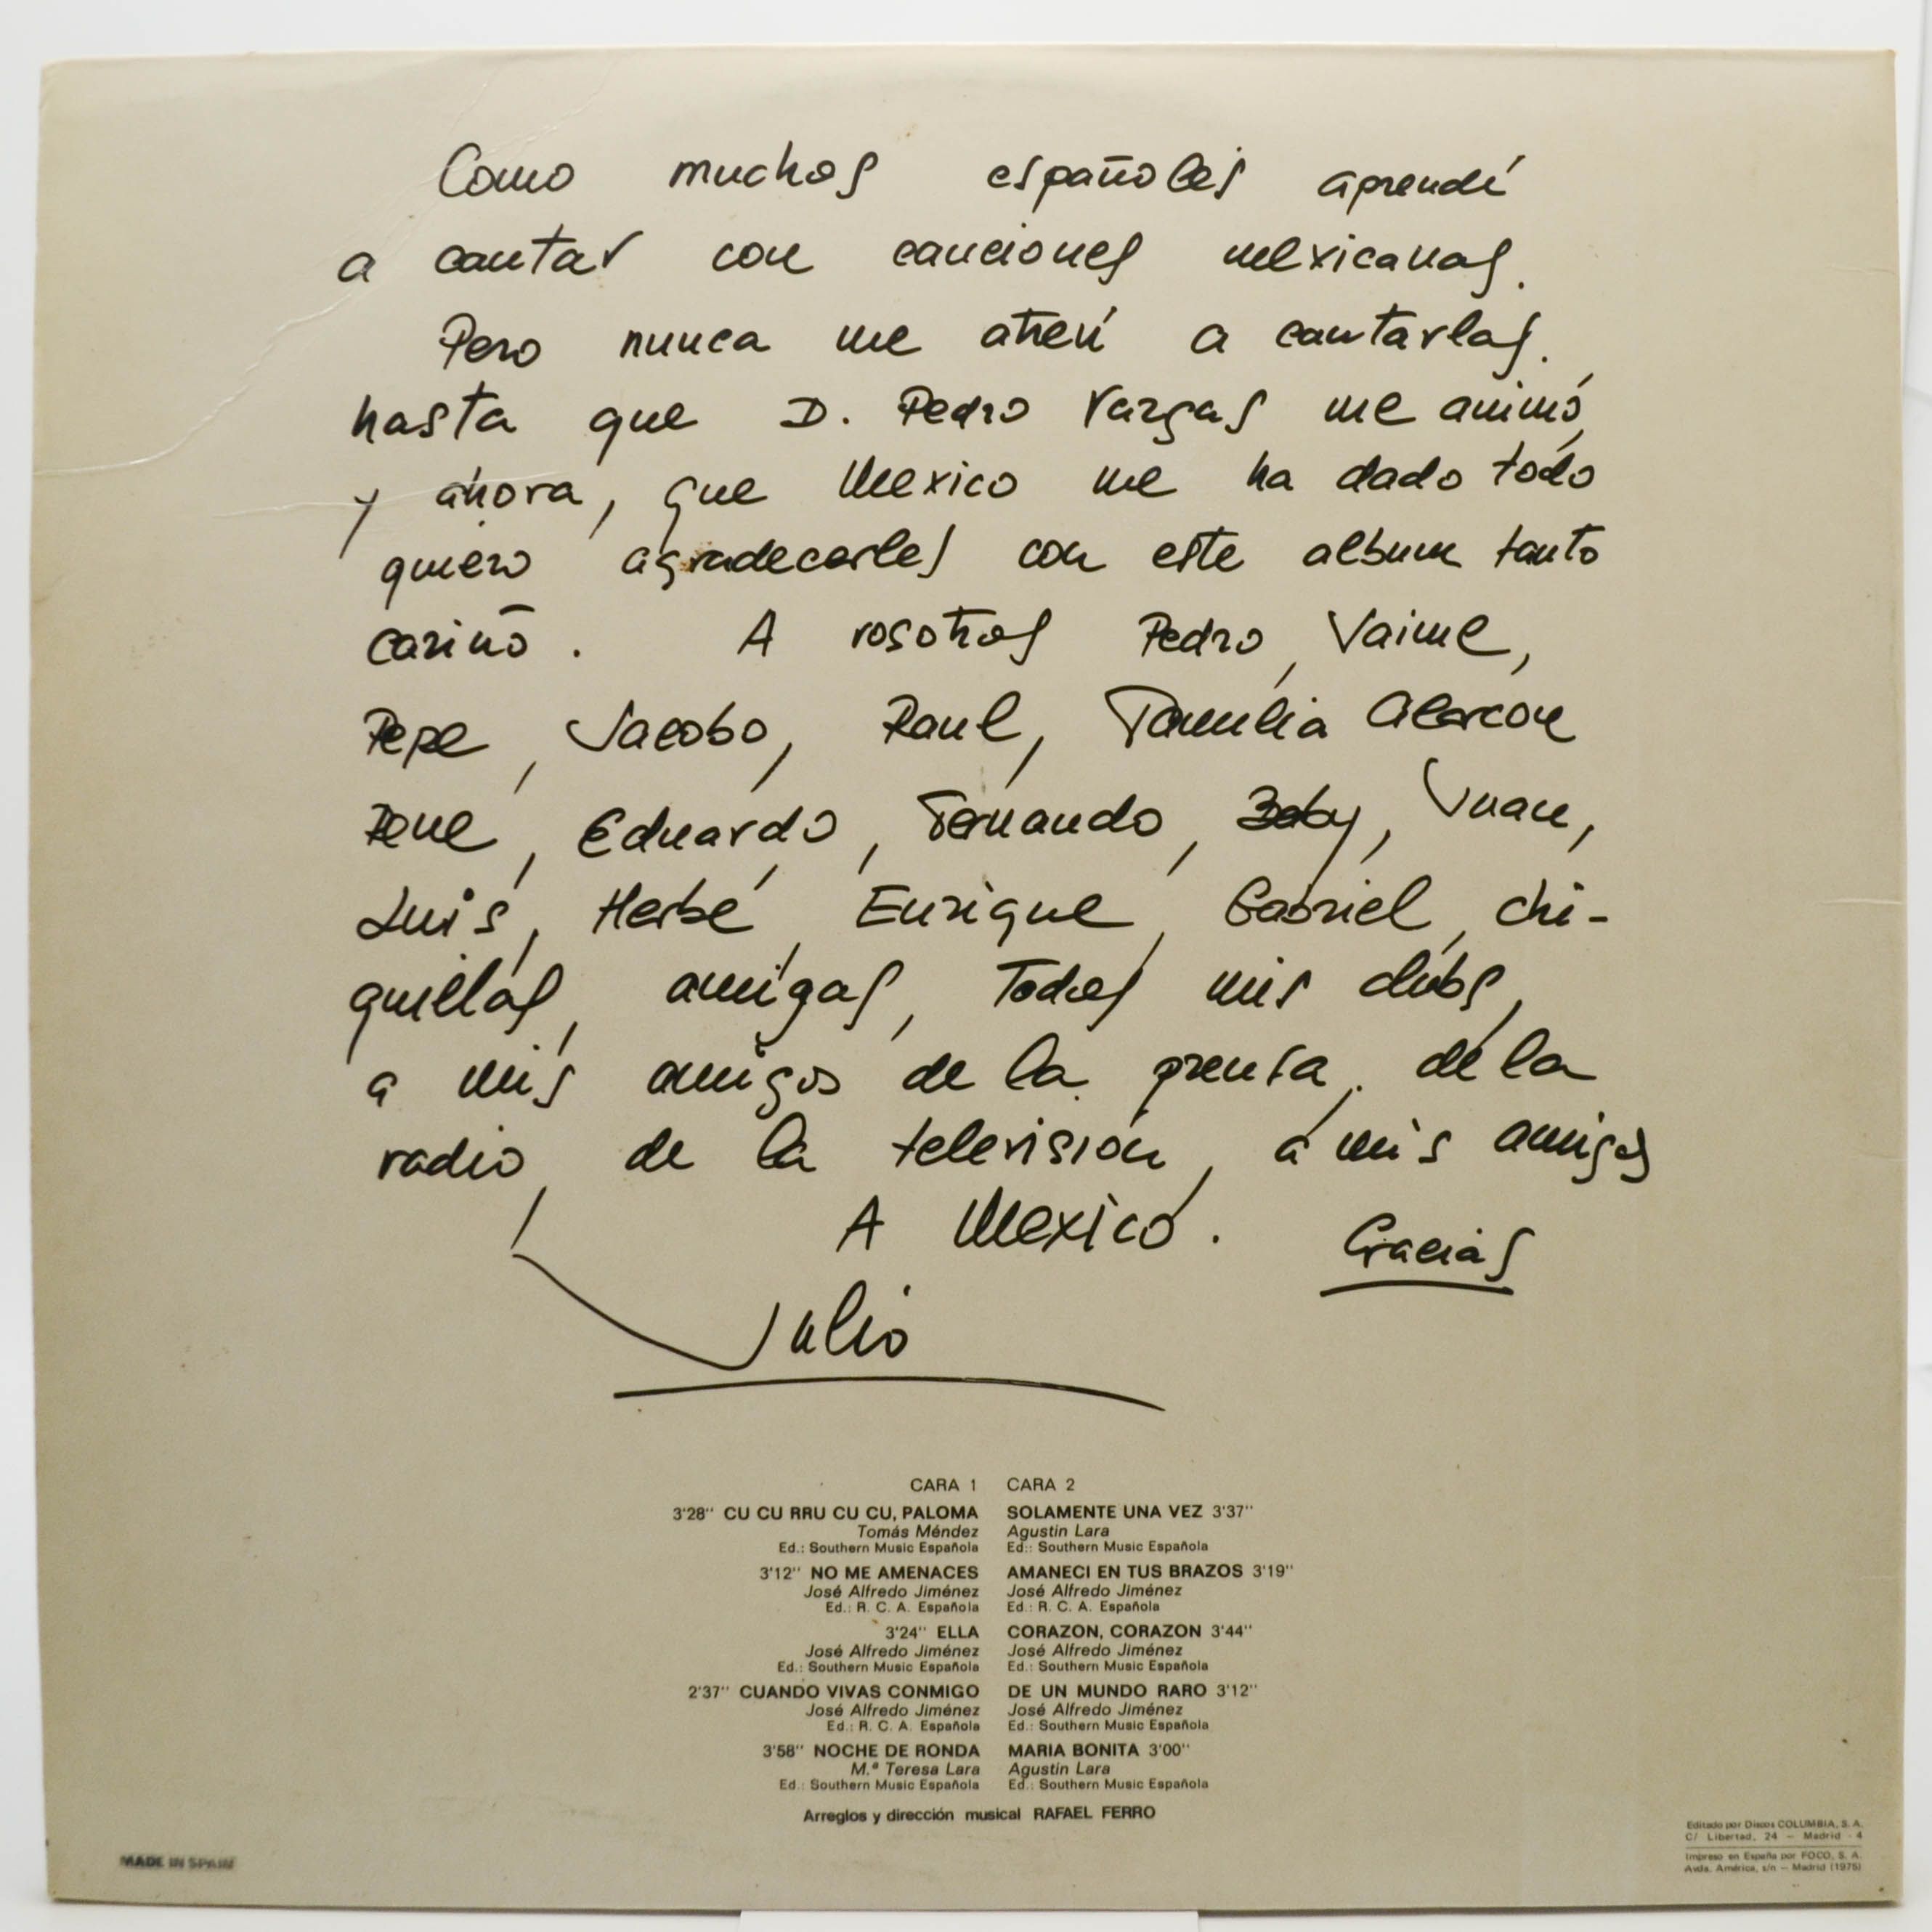 Como muchos españoles aprendí
a cantar con canciones mexicanas.
Pero nunca me atreví a cantarlas.
hasta que D. Pedro Vargas me animó,
y ahora, que Mexico me ha dado todo
quiero agradecerles con este album tanto
cariño. A vosotros Pedro, Jaime,
Pepe, Jacobo, Raul, Familia Alarcon
Rene, Eduardo, Fernando, Baby, Juan,
Luis, Herbé, Enrique, Gabriel, chi-
quillas, amigas, Todos mis clubs,
a mis amigos de la prensa. de la
radio, de la television, a mis amigos
A Mexico. Gracias
Julio
CARA 1
3'28'' CU CU RRU CU CU, PALOMA
Tomás Méndez
Ed.: Southern Music Española
3'12'' NO ME AMENACES
José Alfredo Jiménez
Ed.: R. C. A. Española
3'24'' ELLA
José Alfredo Jiménez
Ed.: Southern Music Española
2'37'' CUANDO VIVAS CONMIGO
José Alfredo Jiménez
Ed.: R. C. A. Española
3'58'' NOCHE DE RONDA
M.ª Teresa Lara
Ed.: Southern Music Española
CARA 2
SOLAMENTE UNA VEZ 3'37''
Agustin Lara
Ed.: Southern Music Española
AMANECI EN TUS BRAZOS 3'19''
José Alfredo Jiménez
Ed.: R. C. A. Española
CORAZON, CORAZON 3'44''
José Alfredo Jiménez
Ed.: Southern Music Española
DE UN MUNDO RARO 3'12''
José Alfredo Jiménez
Ed.: Southern Music Española
MARIA BONITA 3'00''
Agustin Lara
Ed.: Southern Music Española
Arreglos y dirección musical RAFAEL FERRO
MADE IN SPAIN
Editado por Discos COLUMBIA, S. A.
C/ Libertad, 24 - Madrid - 4
Impreso en España por FOCO, S. A.
Avda. América, s/n - Madrid (1975)